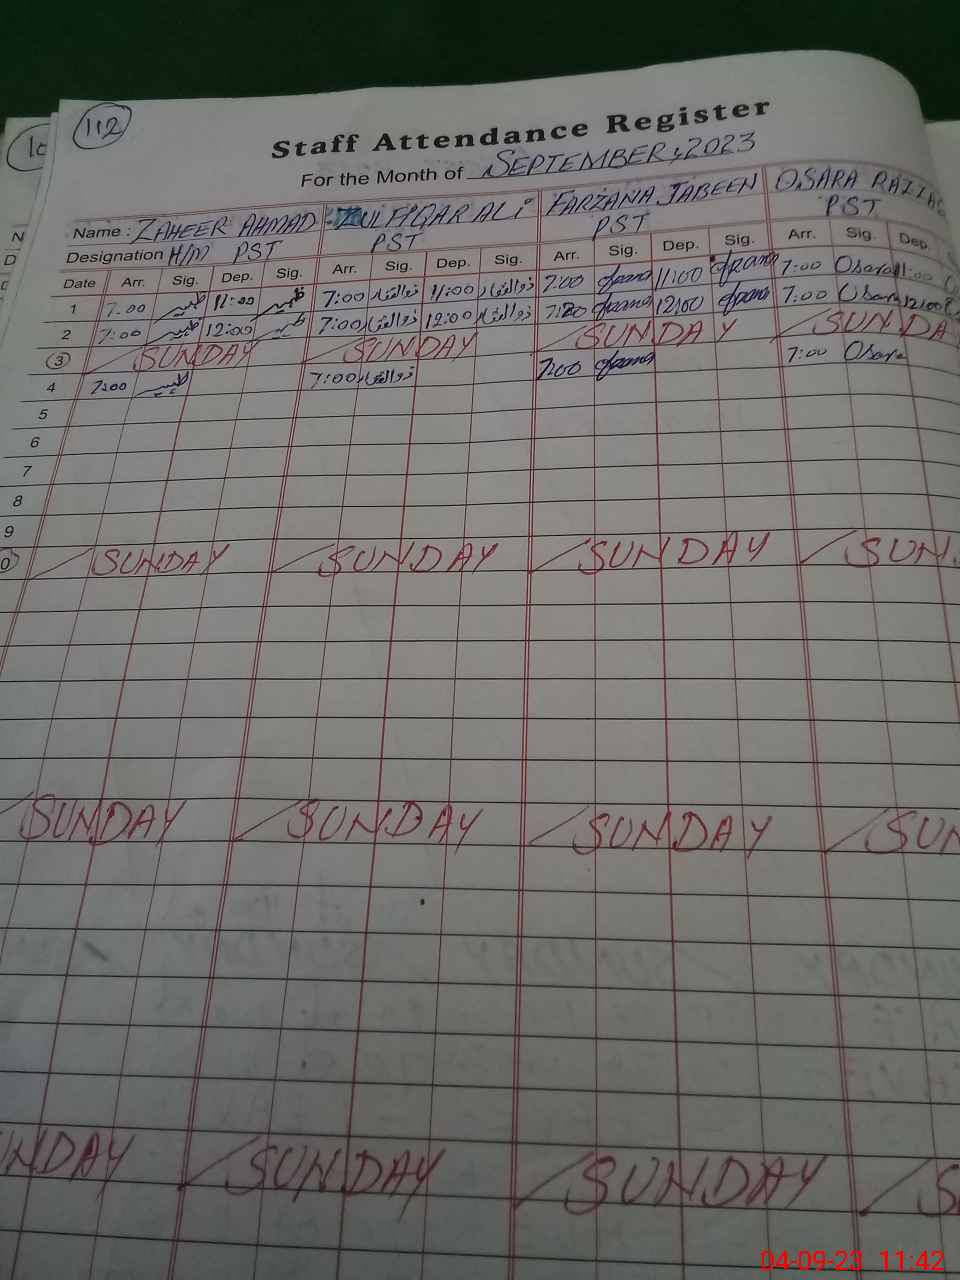 112
Staff Attendance Register
For the Month of SEPTEMBER, 2023
Name : ZAHEER AHMAD ZULFIQAR ALi FARZANA JABEEN OSARA RAZZAQ
Designation H/M PST PST PST PST
Date Arr. Sig. Dep. Sig. Arr. Sig. Dep. Sig. Arr. Sig. Dep. Sig. Arr. Sig. Dep.
1 7:00 ظہیر 11:00 ظہیر 7:00 ذوالفقار 11:00 ذوالفقار 7:00 11:00 7:00 Osara 11:00
2 7:00 ظہیر 12:00 ظہیر 7:00 ذوالفقار 12:00 ذوالفقار 7:00 12:00 7:00 Osara 12:00
3 SUNDAY SUNDAY SUNDAY SUNDA
4 7:00 ظہیر 7:00 ذوالفقار 7:00 7:00 Osara
5
6
7
8
9
0 SUNDAY SUNDAY SUNDAY SUN
SUNDAY SUNDAY SUNDAY SUN
NDAY SUNDAY SUNDAY S
04-09-23 11:42